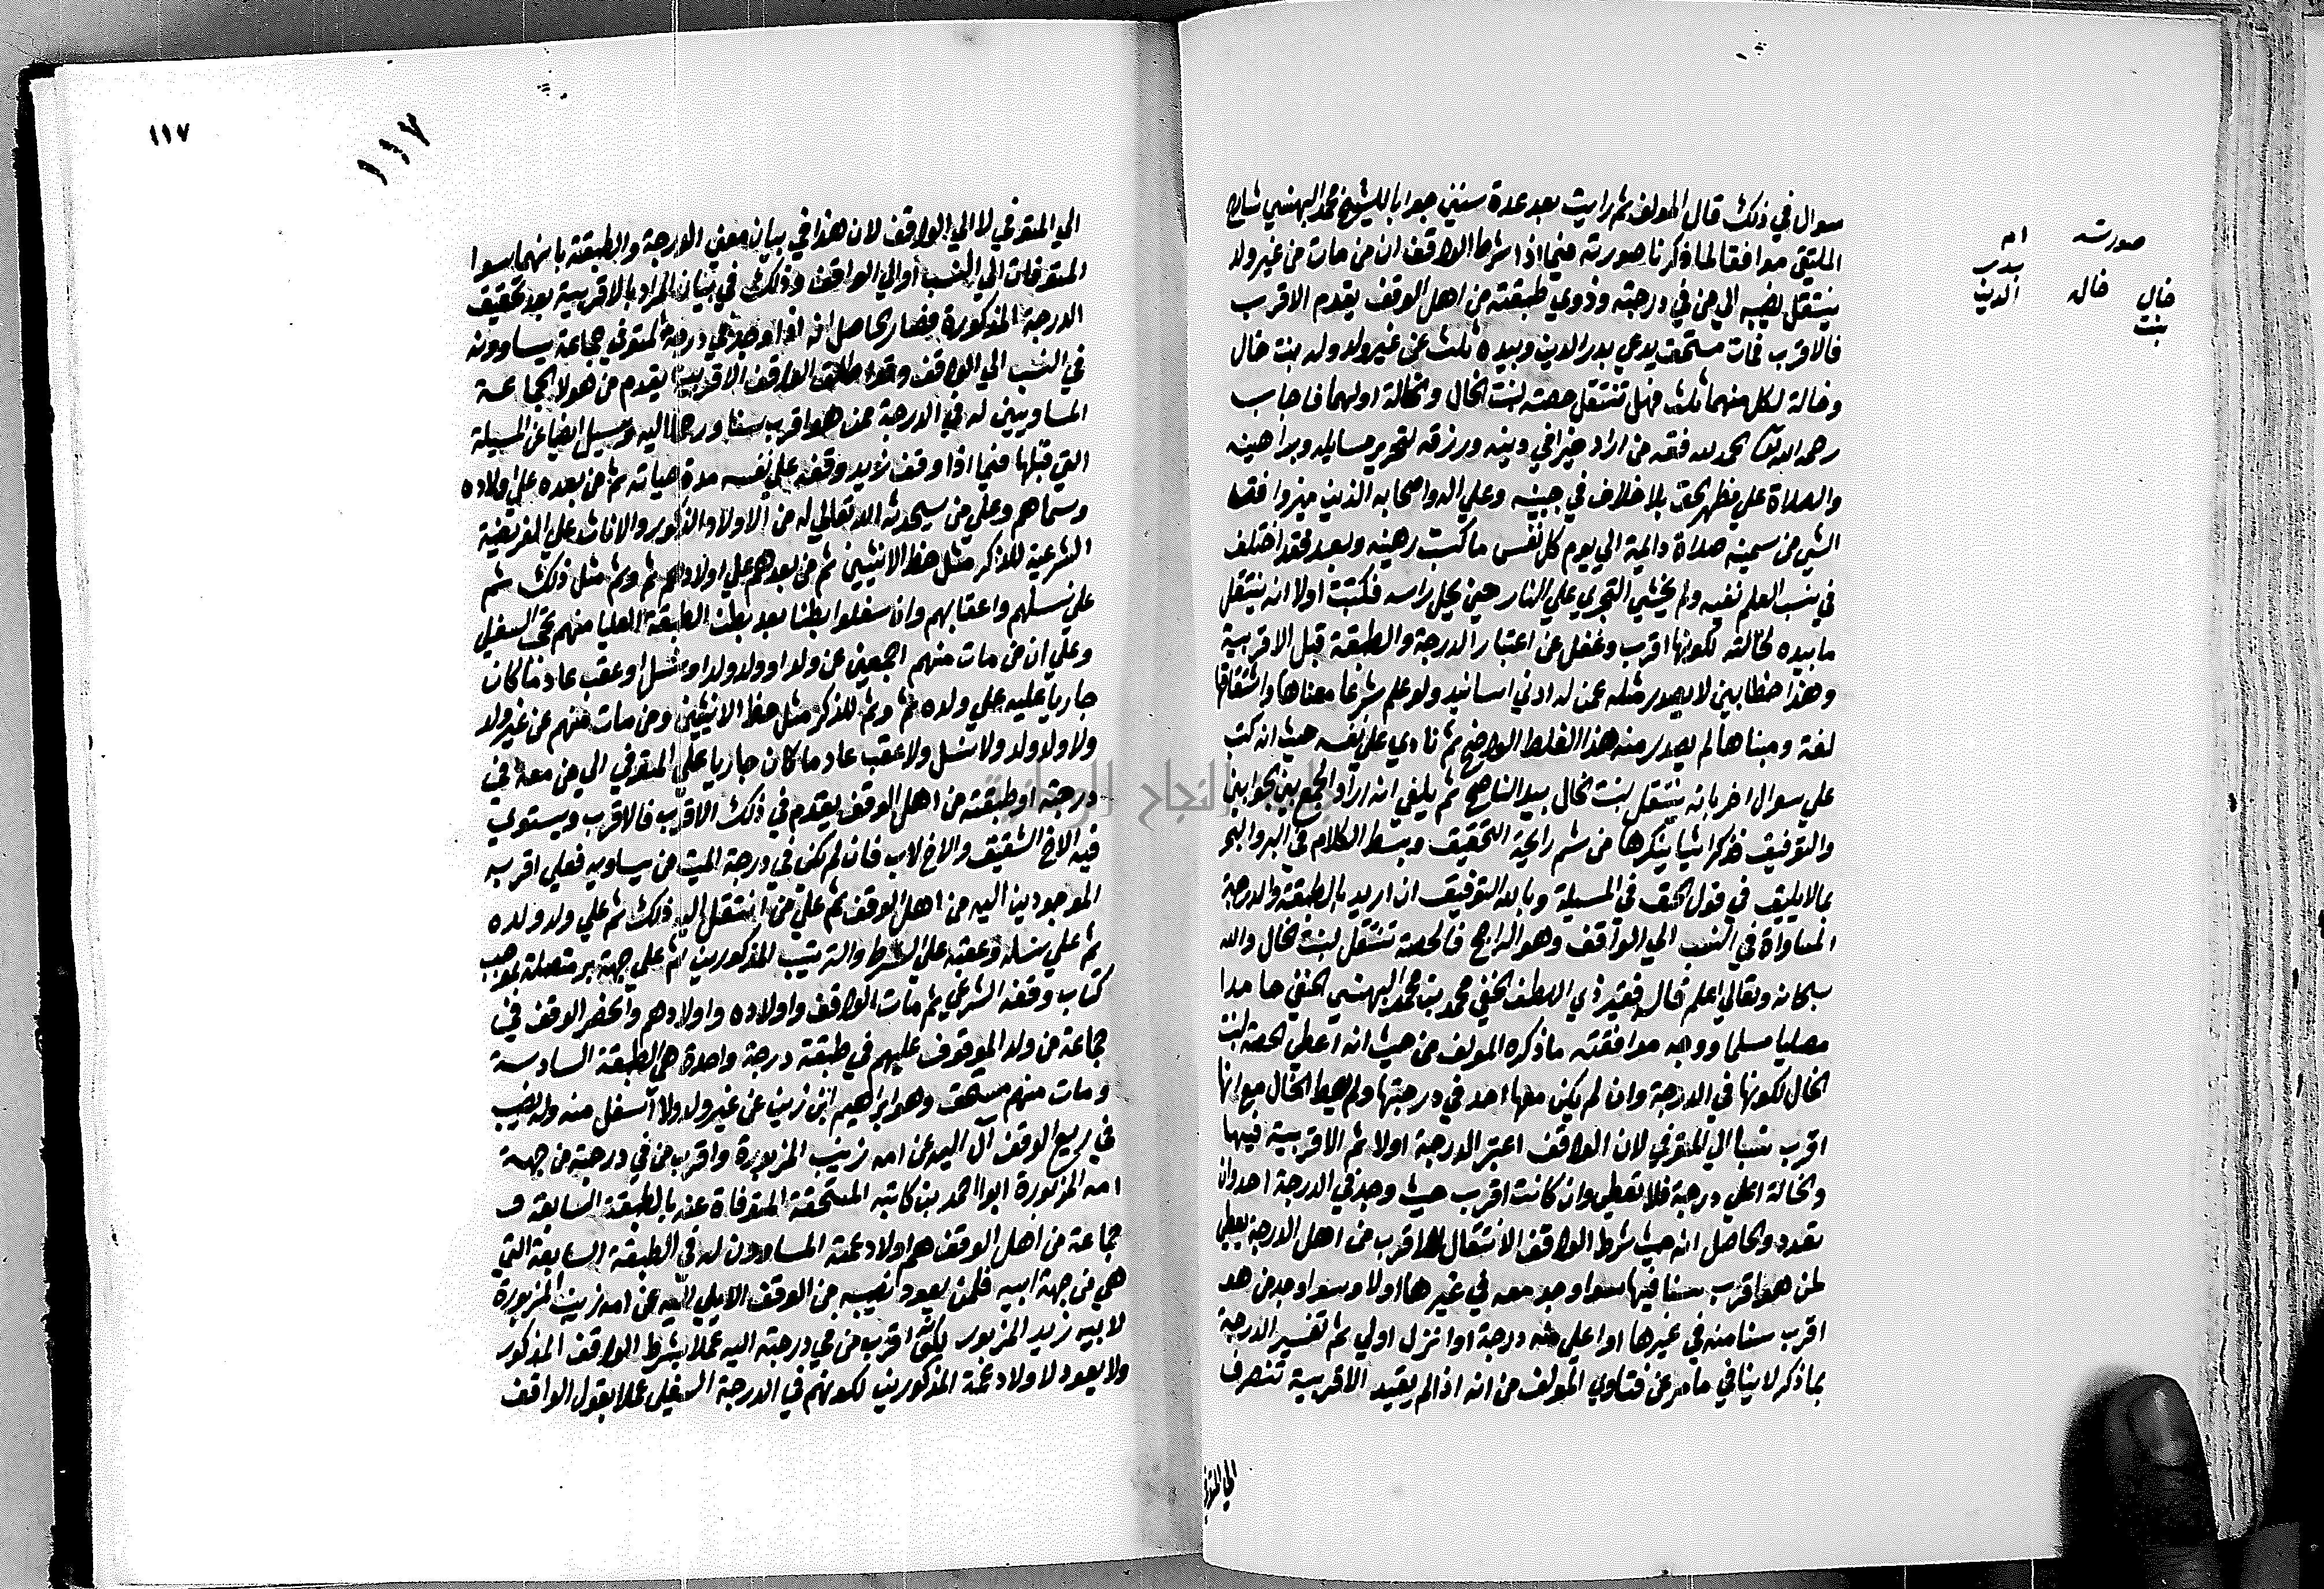 سوال في ذلك قال المولف ثم رايت بعد عدة سنين جوابا للشيخ محمد البهنسي شارح
الملتقي موافقا لما ذكرنا صورته فيما اذا شرط الواقف ان من مات من غير ولد
ينتقل نصيبه الي من في درجته وذوي طبقته من اهل الوقف يقدم الاقرب
فالاقرب فمات مستحق يدعي بدر الدين وبيده ثلث عن غير ولد وله بنت خال
وخالة لكل منهما ثلث فهل تنتقل حصته لبنت الخال والخالة اولهما فاجاب
رحمه الله تعا الحمد لله فقه من اراد خيرا في دينه ورزقه لتحرير مسايله وبراهينه
والصلاة علي مظهر الحق بلا خلاف في جبينه وعلي اله واصحابه الذين ميزوا فقه
الشي من سمينه صلاة دايمة الي يوم كل نفس ما كسبت رهينه وبعد فقد اختلف
في نسب العلم نفيه ولم يخشي التجري علي النار حين يحل راسه فكتبت اولا انه ينتقل
ما بيده لخالته لكونها اقرب وغفل عن اعتبار الدرجة والطبقة قبل الاقربية
وهذا خطا بين لا يصدر مثله عمن له ادني اسانيد ولو علم شرعا معناها واشتقاقها
لغة ومبناها لم يصدر منه هذا الغلط الواضح ثم نادي علي نفسه حيث انه كتب
علي سوال اخر بانه ينتقل لبنت الخال بيد الناصح ثم بلغني انه اراد الجمع بين الجوابين
والتوفيق فذكر اشيا ينكرها من شم رائحة التحقيق وبسط الكلام في البر والبحر
بما لا يليق في قول الحق في المسيلة وبالله التوفيق ان اريد بالطبقة والدرجة
المساواة في النسب الي الواقف وهو الراجح فالحصة تنتقل لبنت الخال والله
سبحانه وتعالي اعلم قال فقير ذي اللطف الخفي محمد بن محمد البهنسي الحنفي حامدا
مصليا مسلما ووجه موافقته ما ذكره المولف من حيث انه اعطي الحصة لبنت
الخال لكونها في الدرجة وان لم يكن معها احد في درجتها ولم يعط الخال مع انها
اقرب نسبا الي المتوفي لان الواقف اعتبر الدرجة اولا ثم الاقربية فيها
والخالة اعلي درجة فلا تعطي وان كانت اقرب حيث وجد في الدرجة احد وان
تعدد والحاصل انه حيث شرط الواقف الانتقال للاقرب من اهل الدرجة يعطي
لمن هو اقرب نسبا فيها سوا وجد معه في غيرها اولا وسوا وجد من هو
اقرب نسبا منه في غيرها او اعلي منه درجة او انزل اولي ثم تفسير الدرجة
بما ذكر لا ينافي ما مر عن فتاوي المولف من انه اذا لم يقيد الاقربية تنصرف
الي المتوفي
صورته
ام
بدر
الدين
خاله
خال
بنت
١١٧
١١٧
الي المتوفي لا الي الواقف لان هذا في بيان معني الدرجة والطبقة بانهما سوا
المتوفات الي النسب او الي الواقف وذلك في بيان المراد بالاقربية بعد تحقيق
الدرجة المذكورة فصار الحاصل انه اذا وجد في درجة المتوفي جماعة يساوونه
في النسب الي الواقف وقد اطلق الواقف الاقربية يقدم من هولا الجماعة
المساويين له في الدرجة ممن هو اقرب نسبا ورحما اليه وسيل ايضا عن المسيلة
التي قبلها فيما اذا وقف زيد وقفه علي نفسه مدة حياته ثم من بعده علي اولاده
وسماهم وعلي من سيحدثه الله تعالي له من الاولاد الذكور والاناث علي الفريضة
الشرعية للذكر مثل حظ الانثيين ثم من بعدهم علي اولادهم ثم وثم مثل ذلك ثم
علي نسلهم واعقابهم وان سفلوا بطنا بعد بطن الطبقة العليا منهم تحجب السفلي
وعلي ان من مات منهم اجمعين عن ولد او ولد ولد او نسل او عقب عاد ما كان
جاريا عليه علي ولده ثم وثم للذكر مثل حظ الانثيين ومن مات منهم عن غير ولد
ولا ولد ولد ولا نسل ولا عقب عاد ما كان جاريا علي المتوفي الي من معه في
درجته او طبقته من اهل الوقف يقدم في ذلك الاقرب فالاقرب ويستوي
فيه الاخ الشقيق والاخ لاب فان لم يكن في درجة الميت من يساويه فعلي اقرب
الموجودين اليه من اهل الوقف ثم علي من انتقل اليه ذلك ثم علي ولد ولده
ثم علي نسله وعقبه علي الشرط والترتيب المذكورين ثم علي جهة بر متصلة بموجب
كتاب وقفه الشرعي ثم مات الواقف واولاده واولادهم وانحصر الوقف في
جماعة من ولد الموقوف عليهم في طبقة درجة واحدة هي الطبقة السادسة
ومات منهم مستحق وهو ابراهيم ابن زينب عن غير ولد ولا اسفل منه وله نصيب
في ريع الوقف آل اليه عن امه زينب المزبورة واقرب من في درجته من جهة
امه المزبورة ابوا احمد بن كاتبه المستحقة المتوفاة عنه بالطبقة السابعة و
جماعة من اهل الوقف هم اولاد عمة المساوون له في الطبقة السابعة التي
هي من جهة ابيه فلمن يعود نصيبه من الوقف الايل اليه عن امه زينب المزبورة
لابيه زيد المزبور لكونه اقرب من في درجته اليه عملا بشرط الواقف المذكور
ولا يعود لاولاد عمة المذكورين لكونهم في الدرجة السفلي عملا بقول الواقف